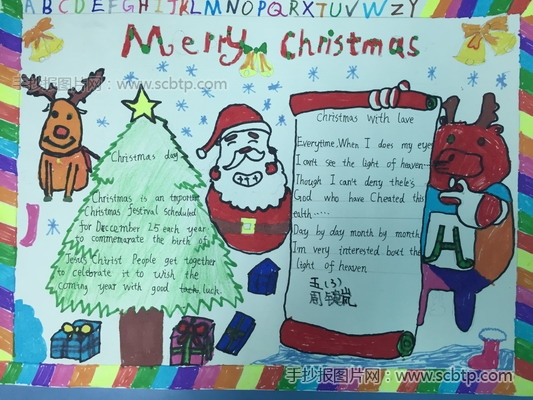 ABCDEFGHIJKLMNOPQRXTUVWZY
Merry Christmas
手抄报图片网：www.scbtp.com
Christmas day
Christmas is an important
Christmas festival scheduled
for Dercember 25 each year
to commemorate the birth of
Jesus Christ People get together
to celebrate it to wish the
coming year with good luck.
Christmas with love
Everytime.When I does my eye
I can't see the light of heaven....
Though I can't deny thele's
God who have Cheated this
ealth.....
Day by day month by month
I'm very interested boat the
light of heaven
五(3)
手抄报图片网：www.scbtp.com